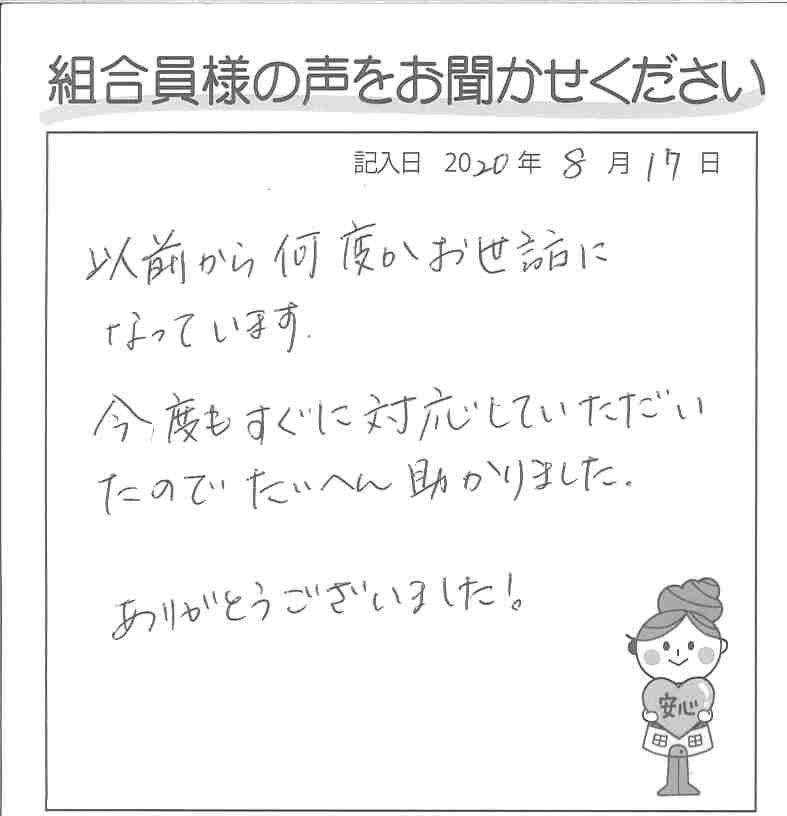 組合員様の声をお聞かせください
記入日 2020年 8月 17日
以前から何度かお世話に
なっています.
今度もすぐに対応していただい
たのでたいへん助かりました.
ありがとうございました!
安心